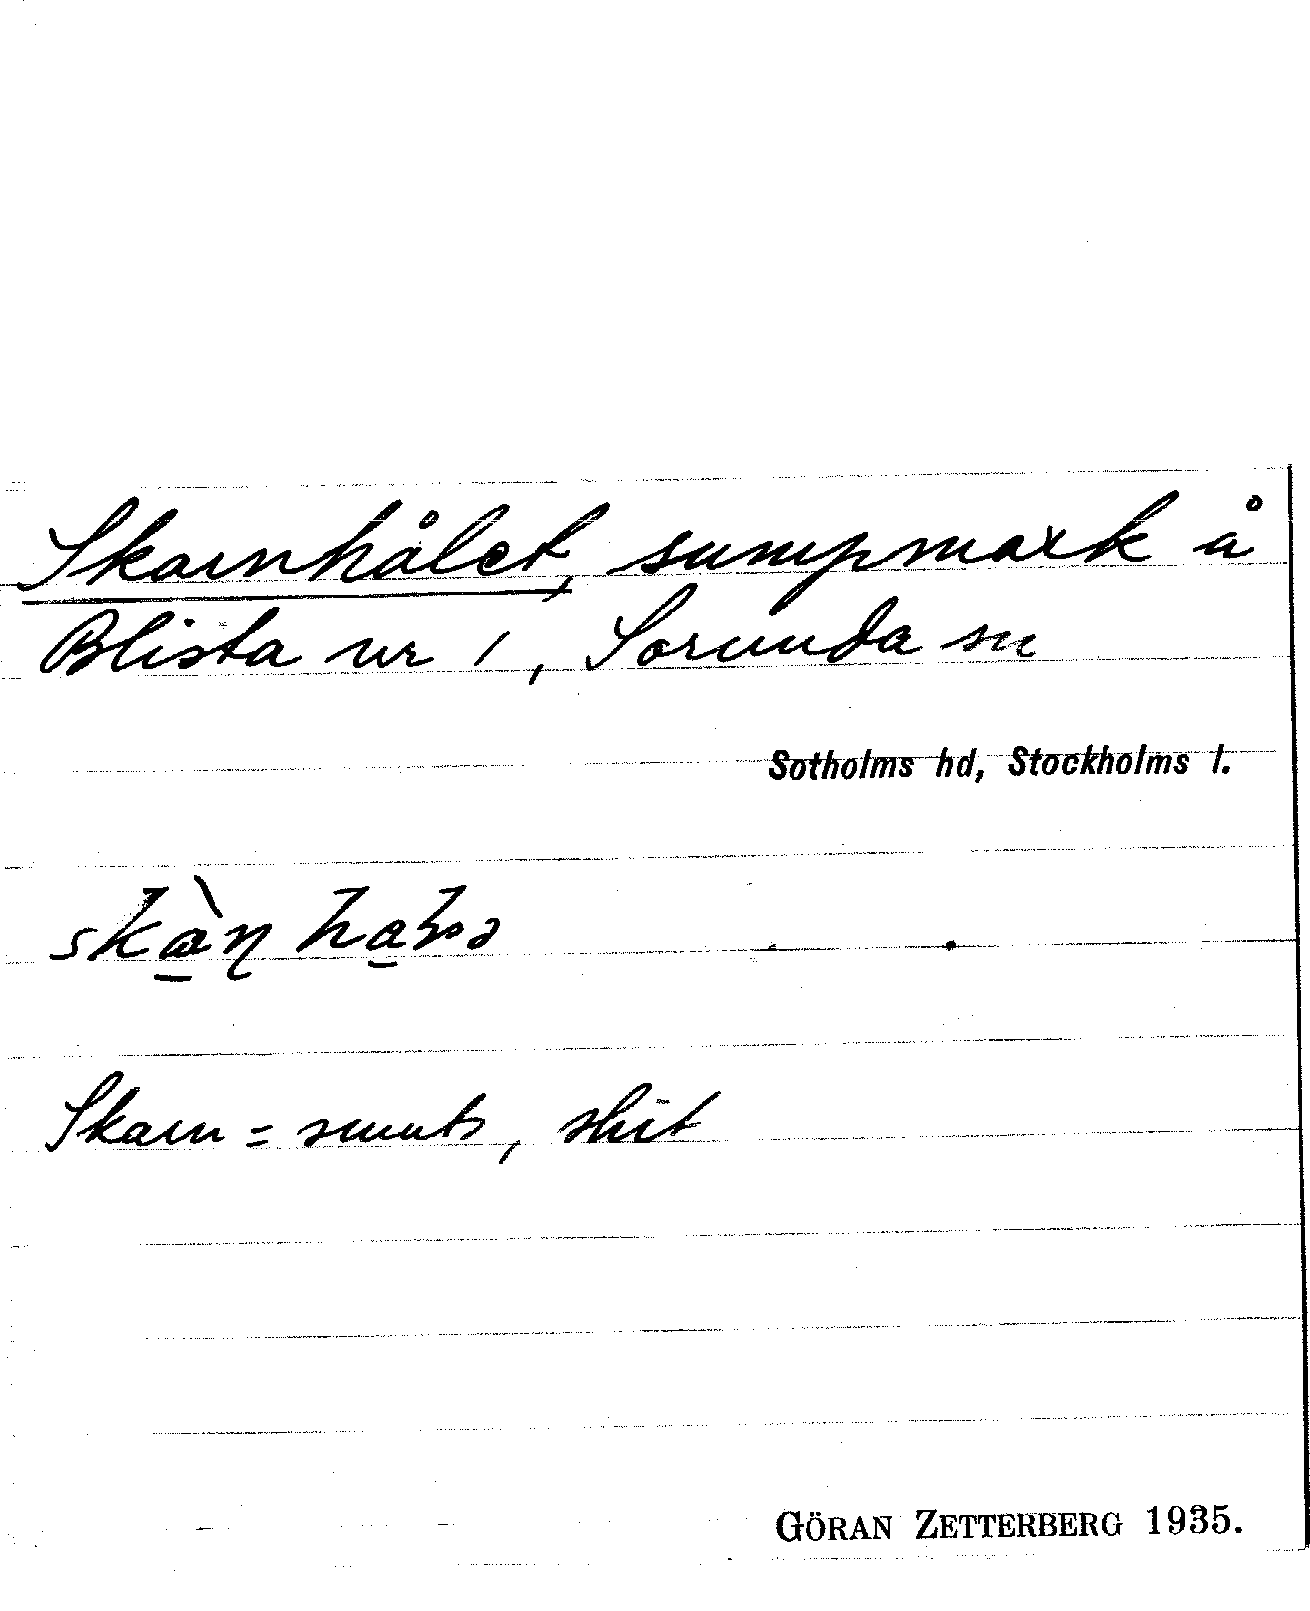 Skarnhålet, sumpmark å
Blista nr 1, Sorunda sn
Sotholms hd, Stockholms l.
Skarn = smuts, skit
GÖRAN ZETTERBERG 1935.